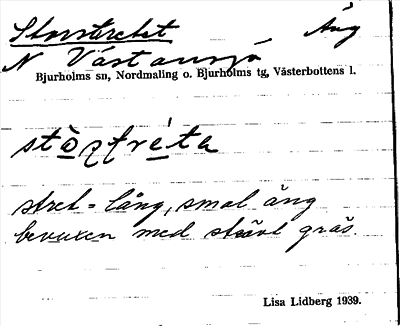 Storstretet, Äng
N Västansjö,
Bjurholms sn, Nordmaling o. Bjurholms tg, Västerbottens l.
stret = lång, smal äng
bevuxen med stävt gräs.
Lisa Lidberg 1939.